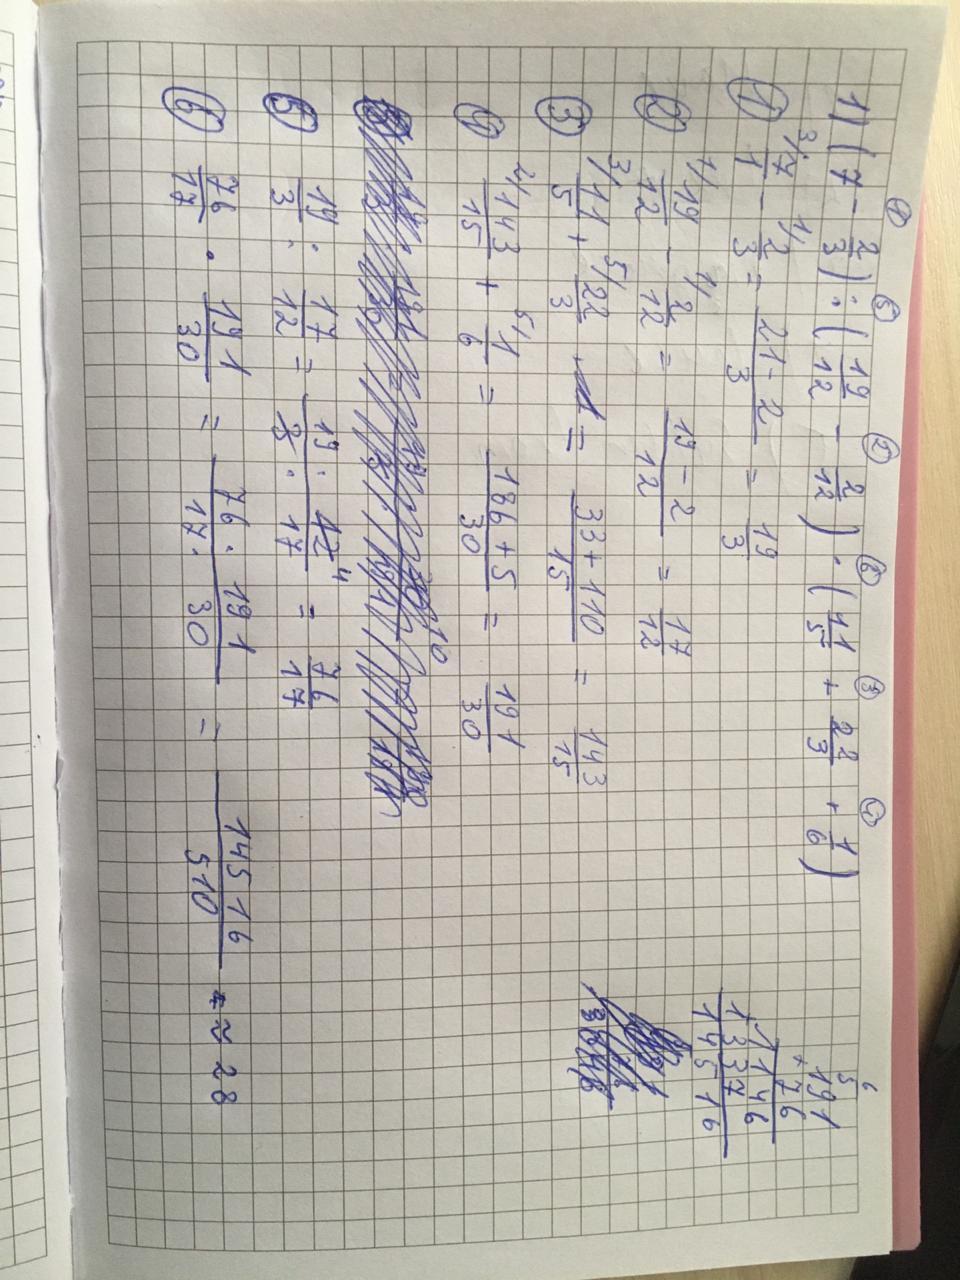 ① ⑤ ② ⑥ ③ ④
1) (7 - 2/3) : (19/12 - 2/12) · (11/5 + 22/3 + 1/6)
① 3/ 7/1 - 1/ 2/3 = (21-2)/3 = 19/3
② 1/ 19/12 - 1/ 2/12 = (19-2)/12 = 17/12
③ 3/ 11/5 + 5/ 22/3 = (33+110)/15 = 143/15
④ 2/ 143/15 + 5/ 1/6 = (186+5)/30 = 191/30
⑤ 19/3 : 17/12 = (19 · 12 4)/(3 · 17) = 76/17
⑥ 76/17 · 191/30 = (76 · 191)/(17 · 30) = 14516/510 ≈ 28
6
5
191
× 76
1146
1337
14516